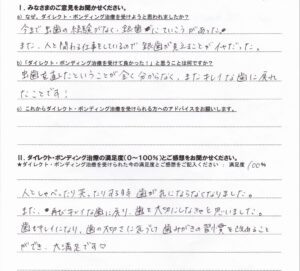 I. みなさまのご意見をお聞かせください。
a) なぜ、ダイレクト・ボンディング治療を受けようと思われましたか？
今まで出歯の経験がなく、銀歯 にていうがあった。
また、人と関わる仕事をしているので銀歯が見えることがイヤだった。
b) 「ダイレクト・ボンディング治療を受けて良かった！」と思うことは何ですか？
出歯を直したということが全く分からなく、またキレイな歯に戻れ
たことです！
c) これからダイレクト・ボンディング治療を受けられる方へのアドバイスをお願いします。
II. ダイレクト・ボンディング治療の満足度（0～100%）とご感想をお聞かせください。
★ダイレクト・ボンディング治療された今の満足度とご感想をご記入ください： 満足度 100%
人としゃべったり笑ったりする時 歯が気にならなくなりました。
また、再びキレイな歯に戻り、歯を大切にしなきゃと思いました。
歯もキレイになり、歯の大切さに気づいて歯みがきの習慣を改めること
ができ、大満足です♡